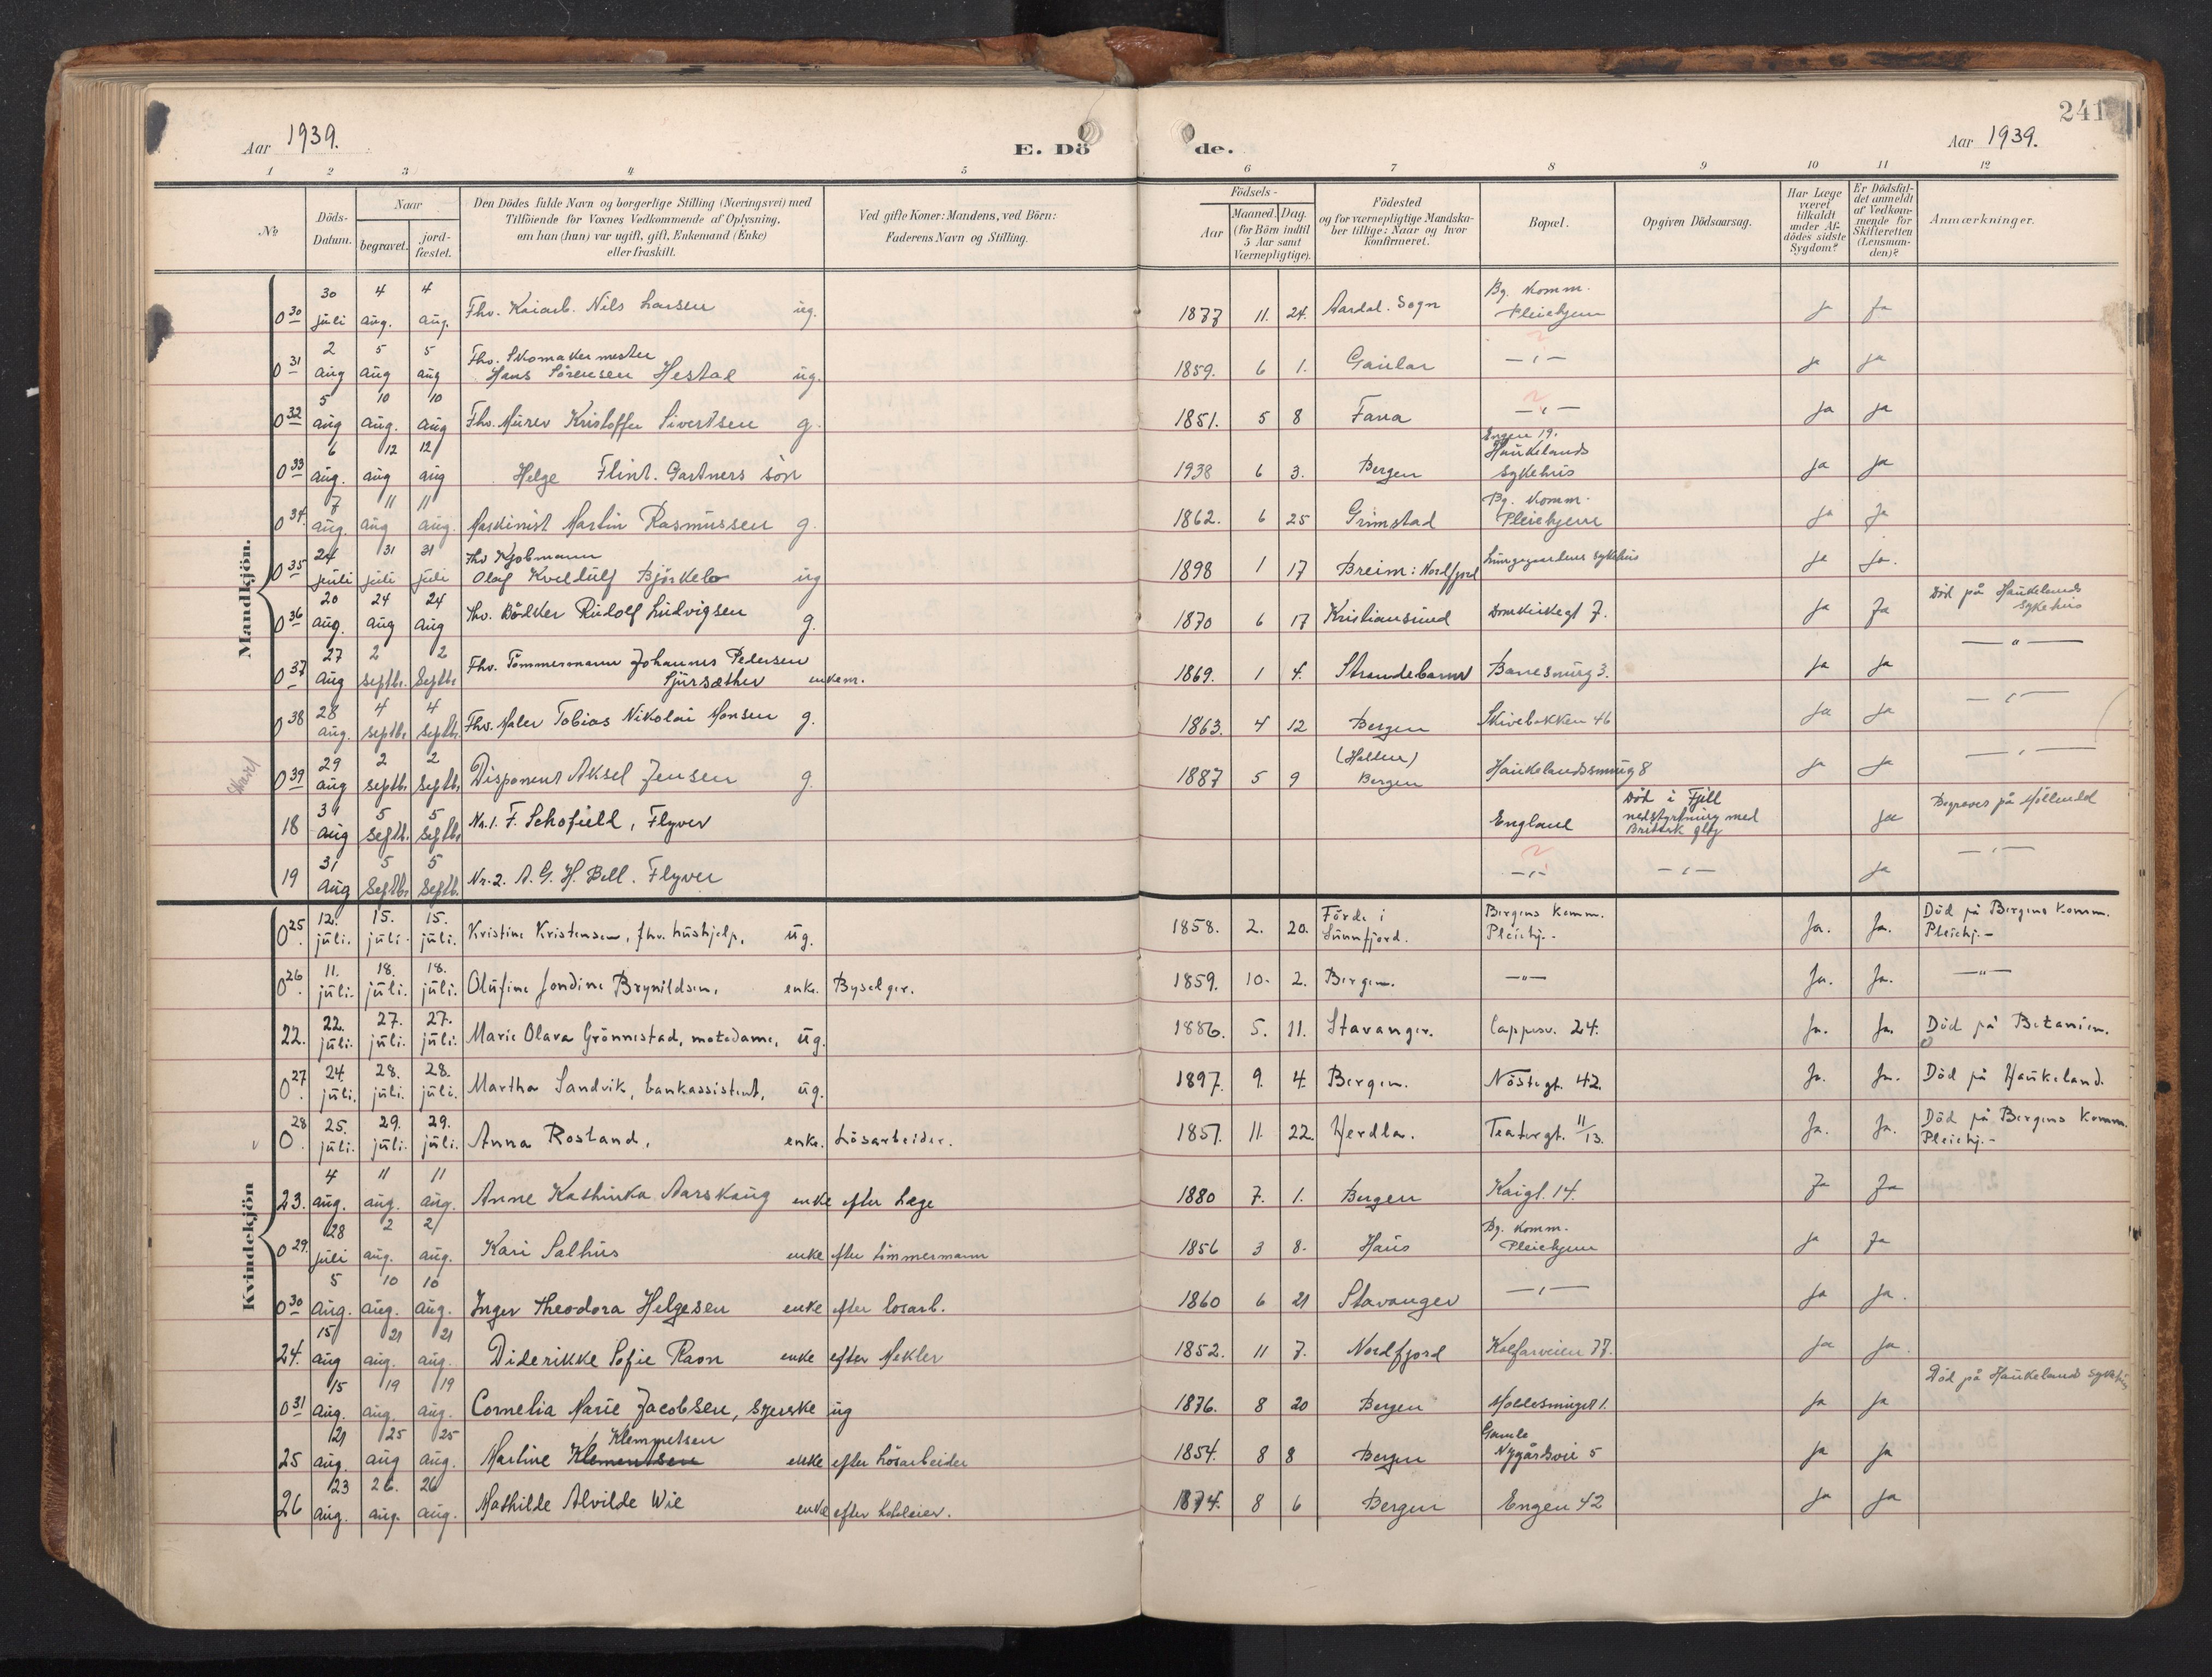 241
Aar 1939.
E. Dö de.
Aar 1939.
1 2 3 4 5 6 7 8 9 10 11 12
No
Döds-Datum.
Naar
begravet.
jord-fæstet.
Den Dödes fulde Navn og borgerlige Stilling (Næringsvei) med
Tilföiende for Voxnes Vedkommende af Oplysning,
om han (hun) var ugift, gift, Enkemand (Enke)
eller fraskilt.
Ved gifte Koner: Mandens, ved Börn:
Faderens Navn og Stilling.
Födsels-
Aar
Maaned. Dag.
(for Börn indtil
5 Aar samt
Værnepligtige).
Födested
og for værnepligtige Mandska-
ber tillige: Naar og hvor
konfirmeret.
Bopæl.
Opgiven Dödsaarsag.
Har Læge
været
tilkaldt
under Af-
dödes sidste
Sygdom?
Er Dödsfal-
det anmeldt
af Vedkom-
mende for
Skifteretten
(Lensman-
den)?
Anmærkninger.
Mandkjön.
0 30 30 juli 4 aug. 4 aug. Fhv. Kaiarb. Nils Larsen ug. 1877 11. 24. Aardal. Sogn Bg. Komm. Pleiehjem ja ja
0 31 2 aug 5 aug 5 aug Fhv. Skomakermester Hans Sörensen Hestad ug. 1859. 6 1. Gaular — " — ja ja
0 32 5 aug 10 aug. 10 aug Fhv. Murer Kristoffer Sivertsen g. 1851. 5 8 Fana — " — ja ja
0 33 6 aug. 12 aug 12 aug Helge Flint. Gartners sön 1938 6 3. Bergen Engen 19. Haukelands sykehus ja ja
0 34. 7 aug. 11 aug 11 aug. Maskinist Martin Rasmussen g. 1862. 6 25 Grimstad Bg. Komm. Pleiehjem ja ja
0 35 24 juli 31 juli 31 juli Fhv Kjöbmann Olaf Kveldulf Björkelo ug 1898 1 17 Breim: Nordfjord Lungegaardens sykehus ja ja.
0 36 20 aug. 24 aug 24 aug Fhv. Bödker Rudolf Ludvigsen g. 1870 6 17 Kristiansund Domkirkegt 7. ja ja Död på Haukelands sykehus
0 37 27 aug 2 septbr. 2 Septbr Fhv. Tömmermann Johannes Pedersen Sjursæther enkem. 1869. 1 4. Strandebarm Banesmug 3. ja ja — " —
0 38 28 aug. 4 septbr. 4 septbr. Fhv. Maler Tobias Nikolai Monsen g. 1863. 4 12 Bergen Skivebakken 46 ja ja — " —
0 39 29 aug 2 septbr. 2 septbr. Disponent Aksel Jensen g 1887 5 9 (Halden) Bergen Haukelandssmug 8 ja ja — " —
18 31 aug 5 septb. 5 septbr Nr. 1. F. Schofield, Flyver England Död i Fjell nedstyrtning med Britisk fly ja Begraves på Möllendal
19 31 aug 5 septbr 5 septb. Nr. 2. A. G. H. Bell. Flyver — " — — " — ja — " —
Kvindekjön
0 25. 12. juli. 15. juli. 15. juli. Kristine Kristensen, fhv. hushjelp, ug. 1858. 2. 20. Förde i Sunnfjord. Bergens Komm. Pleiehj.- Ja. Ja. Död på Bergens Komm. Pleiehj.-
0 26. 11. juli. 18. juli. 18. juli. Olufine Jondine Brynildsen, enke. Byselger. 1859. 10. 2. Bergen. — " — Ja. Ja. — " —
22. 22. juli. 27. juli. 27. juli. Marie Olava Grönnestad, motedame, ug. 1886. 5. 11. Stavanger. Cappesv. 24. Ja. Ja. Död på Betanien.
0 27. 24. juli. 28. juli. 28. juli. Martha Sandvik, bankassistent, ug. 1897. 9. 4. Bergen. Nöstegt. 42. Ja. Ja. Död på Haukeland.
0 28. 25. juli. 29. juli. 29. juli. Anna Rosland, enke. Lösarbeider. 1857. 11. 22. Herdla. Teatergt. 11/13. Ja. Ja. Död på Bergens Komm. Pleiehj.-
23. 4 aug. 11 aug. 11 aug. Anne Kathinka Aarskaug enke efter Læge 1880 7. 1. Bergen Kaigt. 14. Ja Ja
0 29. 28 juli 2 aug. 2 aug. Kari Salhus enke efter tömmermann 1856 3 8. Haus Bg. Komm. Pleiehjem ja Ja
0 30 5 aug. 10 aug. 10 aug. Inger Theodora Helgesen enke efter losarb. 1860 6 21 Stavanger — " — ja ja.
24. 15 aug 21 aug. 21 aug. Diderikke Sofie Ravn enke efter Mekler 1852. 11 7. Nordfjord Kalfarveien 77. ja ja.
0 31 15 aug. 19 aug. 19 aug. Cornelia Marie Jacobsen, syerske ug 1876. 8 20 Bergen Hollesmuget 1. ja ja Död på Haukeland sykehus
25 21 aug. 25 aug 25 aug. Martine Klementsen Klemmetsen enke efter Lösarbeider 1854. 8 8 Bergen Gamle Nygårdsvei 5 ja ja
26 23 aug. 26. aug. 26 aug. Mathilde Alvilde Wie enke efter 1874. 8 6 Bergen Engen 42 ja ja